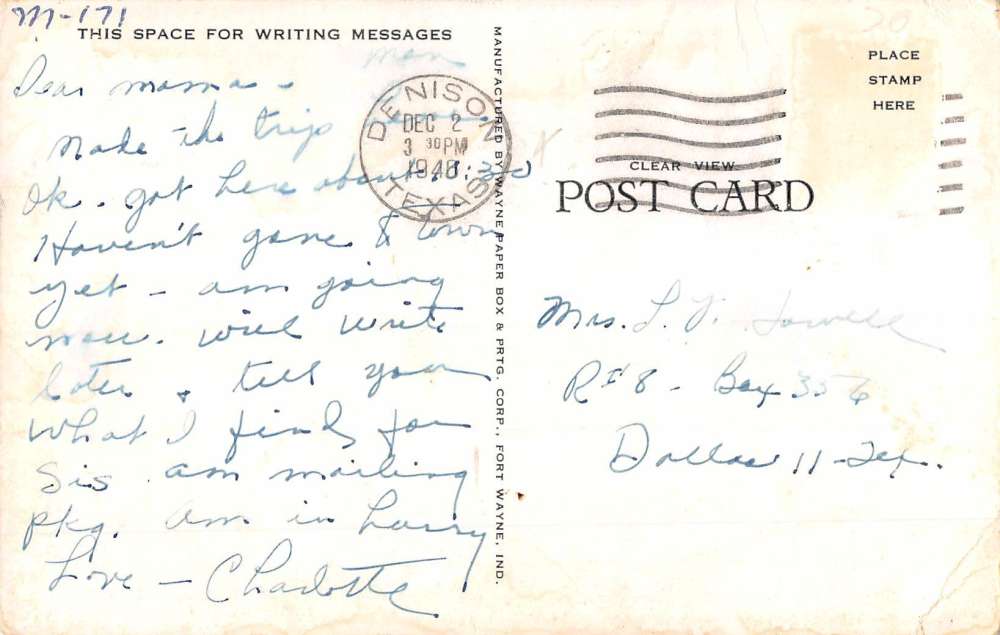 M-171
THIS SPACE FOR WRITING MESSAGES
Mon
Dear mama -
Made the trip
Ok. got here about 1:30
Haven't gone to town
yet - am going
now. will write
later & tell you
what I find for
Sis. am mailing
pkg. am in hurry
Love - Charlotte
DENISON
DEC 2
3 30 PM
1948
TEXAS
MANUFACTURED BY WAYNE PAPER BOX & PRTG. CORP., FORT WAYNE, IND.
20
PLACE
STAMP
HERE
CLEAR VIEW
POST CARD
Mrs. L. V. Sowell
R#8 - Box 356
Dallas 11 - Tex.